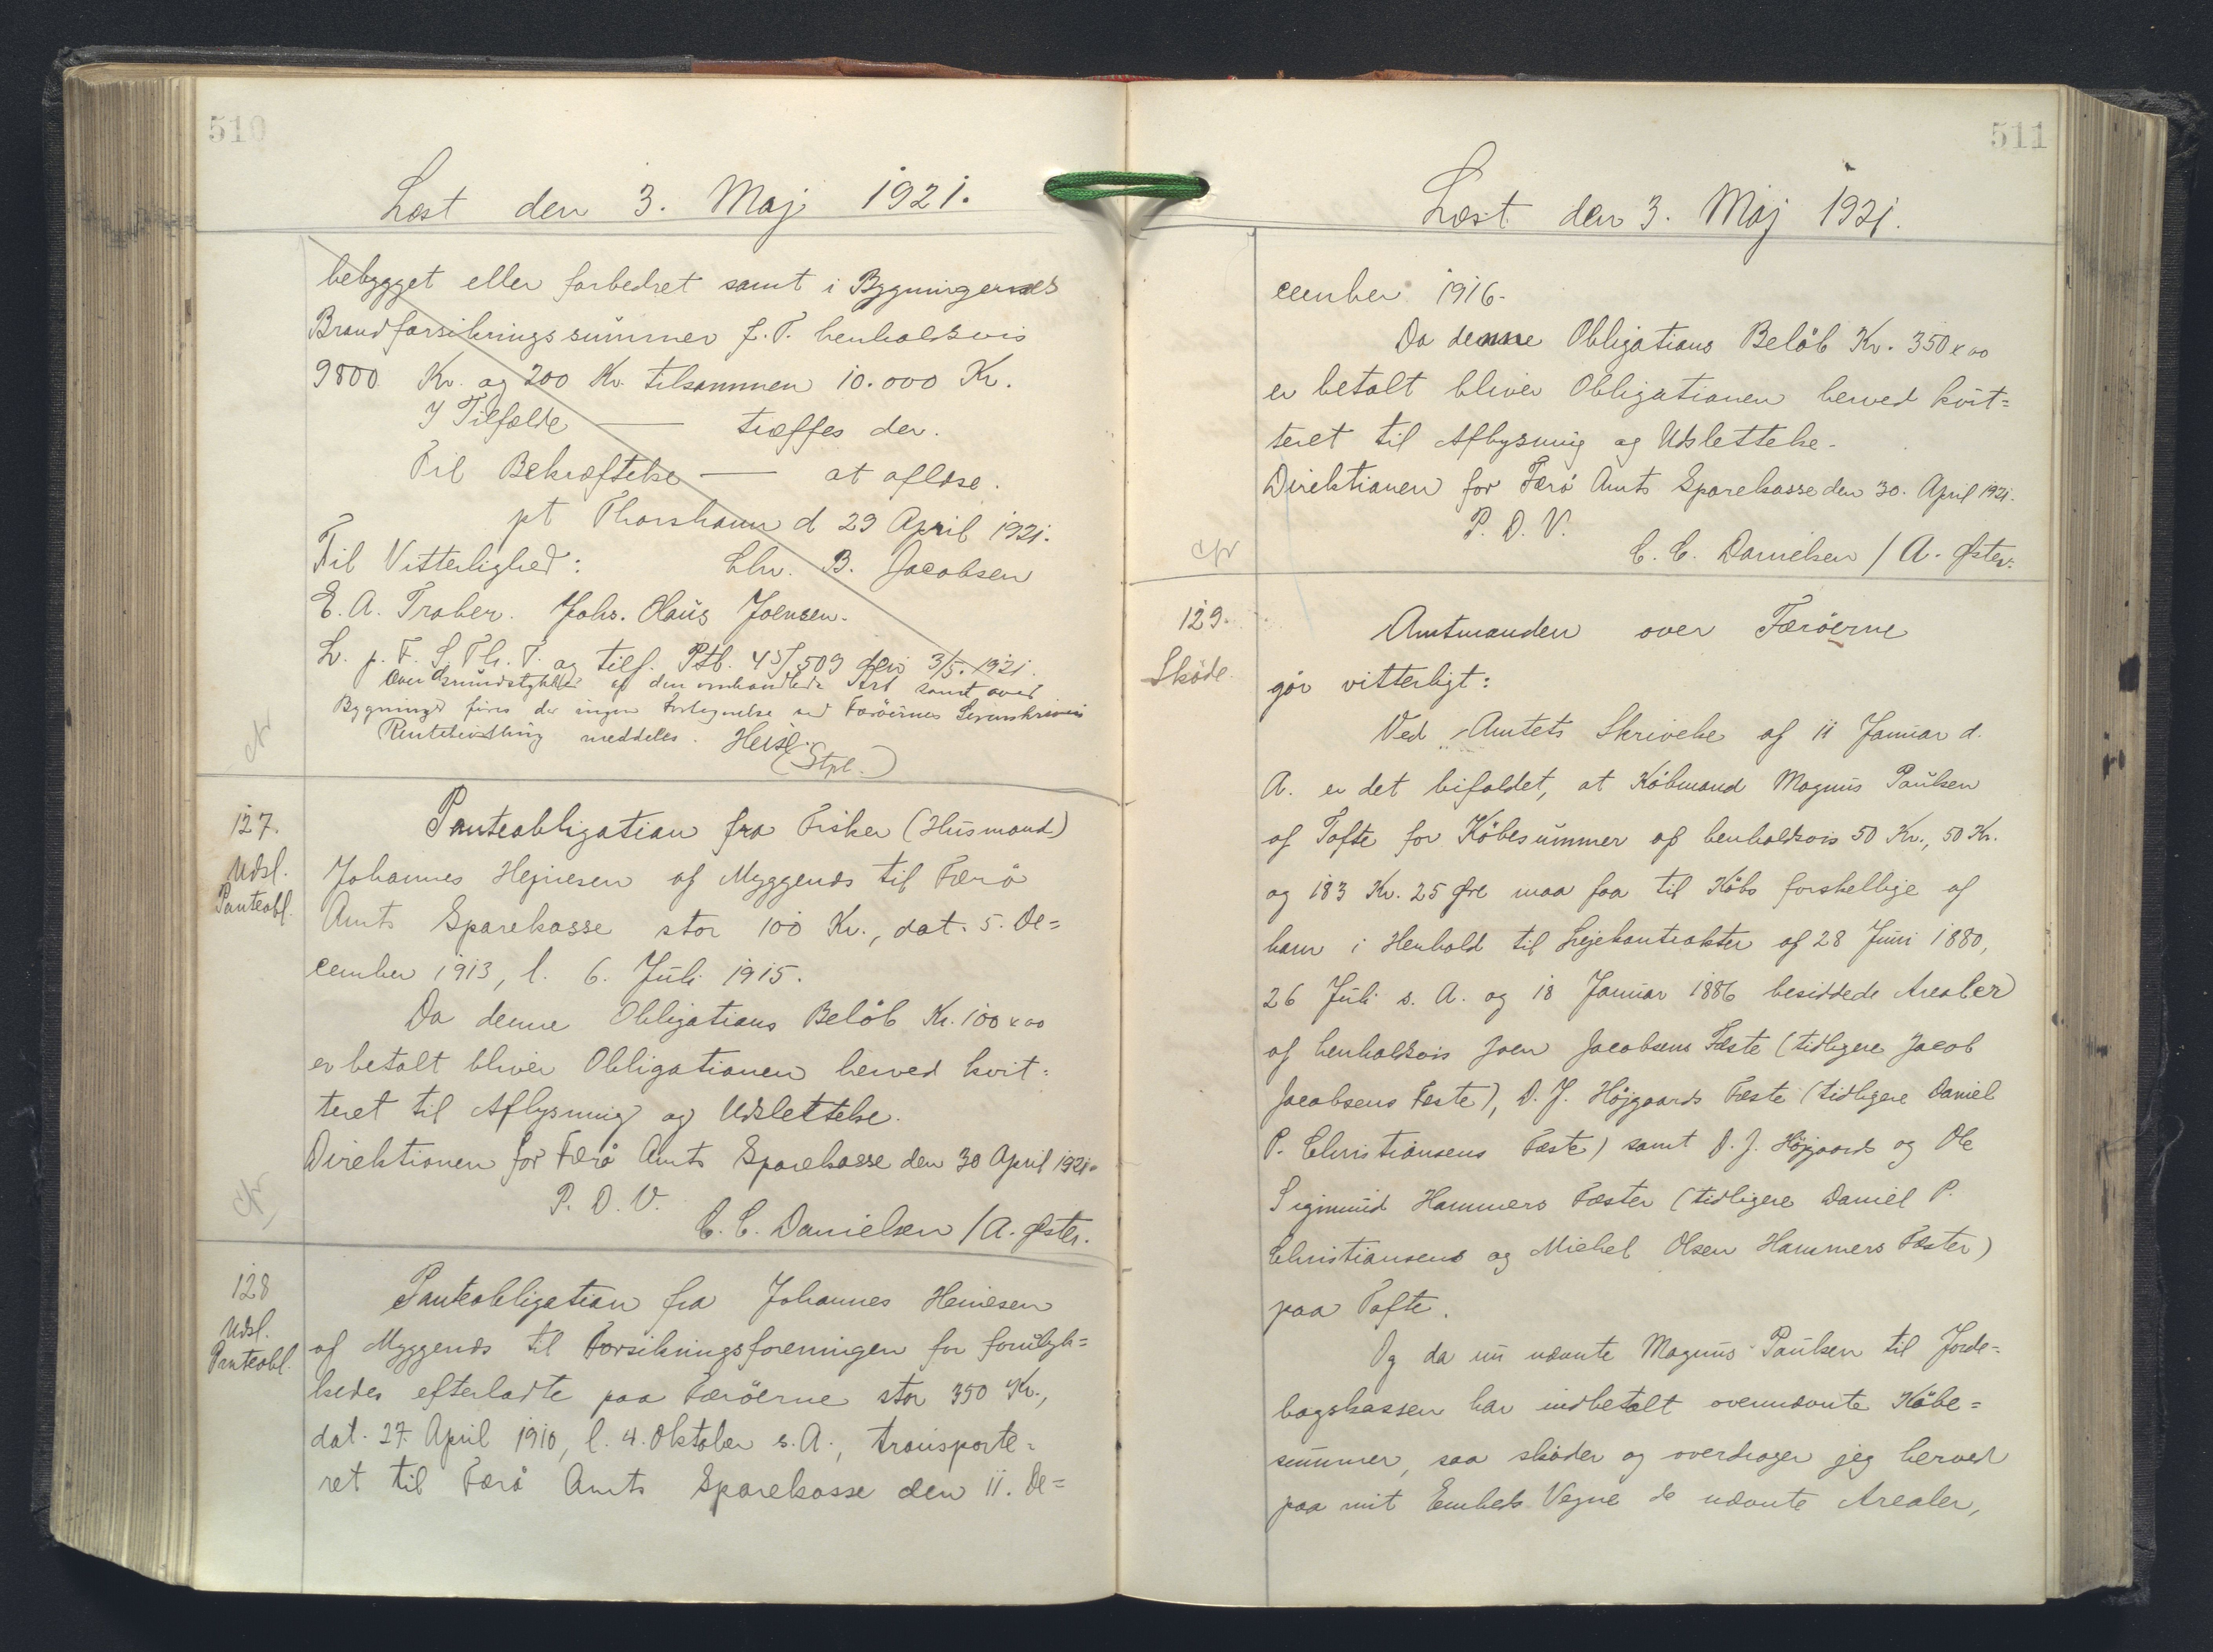 510
Læst den 3. Maj 1921.
bebygget eller forbedret samt i Bygningernes
Brandforsikringssummer p. T. henholdsvis
9800 Kr. og 200 Kr. tilsammen 10.000 Kr.
I Tilfælde — træffes der.
Til Bekræftelse — at aflæse.
pt Thorshavn d 29 April 1921.
Til Vitterlighed: Chr. B. Jacobsen
E. A. Traber. Johs. Claus Joensen.
L. p. F. S. Th. T. og tilf. Ptb. 45/509 den 3/5. 1921.
Over Grundstykker af den omhandlede Art samt over
Bygninger føres der ingen Fortegnelse ved Færöernes Sorenskriveri
meddeles. (Stpl.)
127.
Udsl.
Panteobl.
Panteobligation fra Fisker (Husmand)
Johannes Hejnesen af Myggenæs til Færø
Amts Sparekasse stor 100 Kr., dat. 5. De=
cember 1913, l. 6. Juli 1915.
Da denne Obligations Beløb Kr. 100 x 00
er betalt bliver Obligationen herved kvit=
teret til Aflysning og Udslettelse.
Direktionen for Færø Amts Sparekasse den 30 April 1921.
P. D. V.
C. C. Danielsen / A. Øster.
128
Udsl.
Panteobl.
Panteobligation fra Johannes Heinesen
af Myggenæs til Forsikringsforeningen for forulyk=
kedes efterladte paa Færöerne stor 350 Kr.,
dat. 27. April 1910, l. 4. Oktober s. A., transporte=
ret til Færø Amts Sparekasse den 11. De=
511
Læst den 3. Maj 1921.
cember 1916.
Da denne Obligations Beløb Kr. 350 x 00
er betalt bliver Obligationen herved kvit=
teret til Aflysning og Udslettelse.
Direktionen for Færø Amts Sparekasse den 30. April 1921.
P. D. V.
C. C. Danielsen / A. Øster.
129.
Skøde.
Amtmanden over Færöerne
gör vitterligt:
Ved Amtets Skrivelse af 11 Januar d.
A. er det bifaldet, at Köbmand Magnus Paulsen
af Tofte for Købesummer af henholdsvis 50 Kr., 50 Kr.
og 183 Kr. 25 Øre maa faa til Købs forskellige af
ham i Henhold til Lejekontrakter af 28 Juni 1880,
26 Juli s. A. og 18 Januar 1886 besiddede Arealer
af henholdsvis Joen Jacobsens Fæste (tidligere Jacob
Jacobsens Fæste), D. J. Højgaards Fæste (tidligere Daniel
P. Christiansens Fæste) samt D. J. Højgaards og Ole
Sigmund Hammers Fæster (tidligere Daniel P.
Christiansens og Michel Olsen Hammers Fæster)
paa Tofte.
Og da nu nævnte Magnus Paulsen til Jorde=
bogskassen har indbetalt ovennævnte Købe=
summer, saa skøder og overdrager jeg herved
paa mit Embeds Vegne de nævnte Arealer,